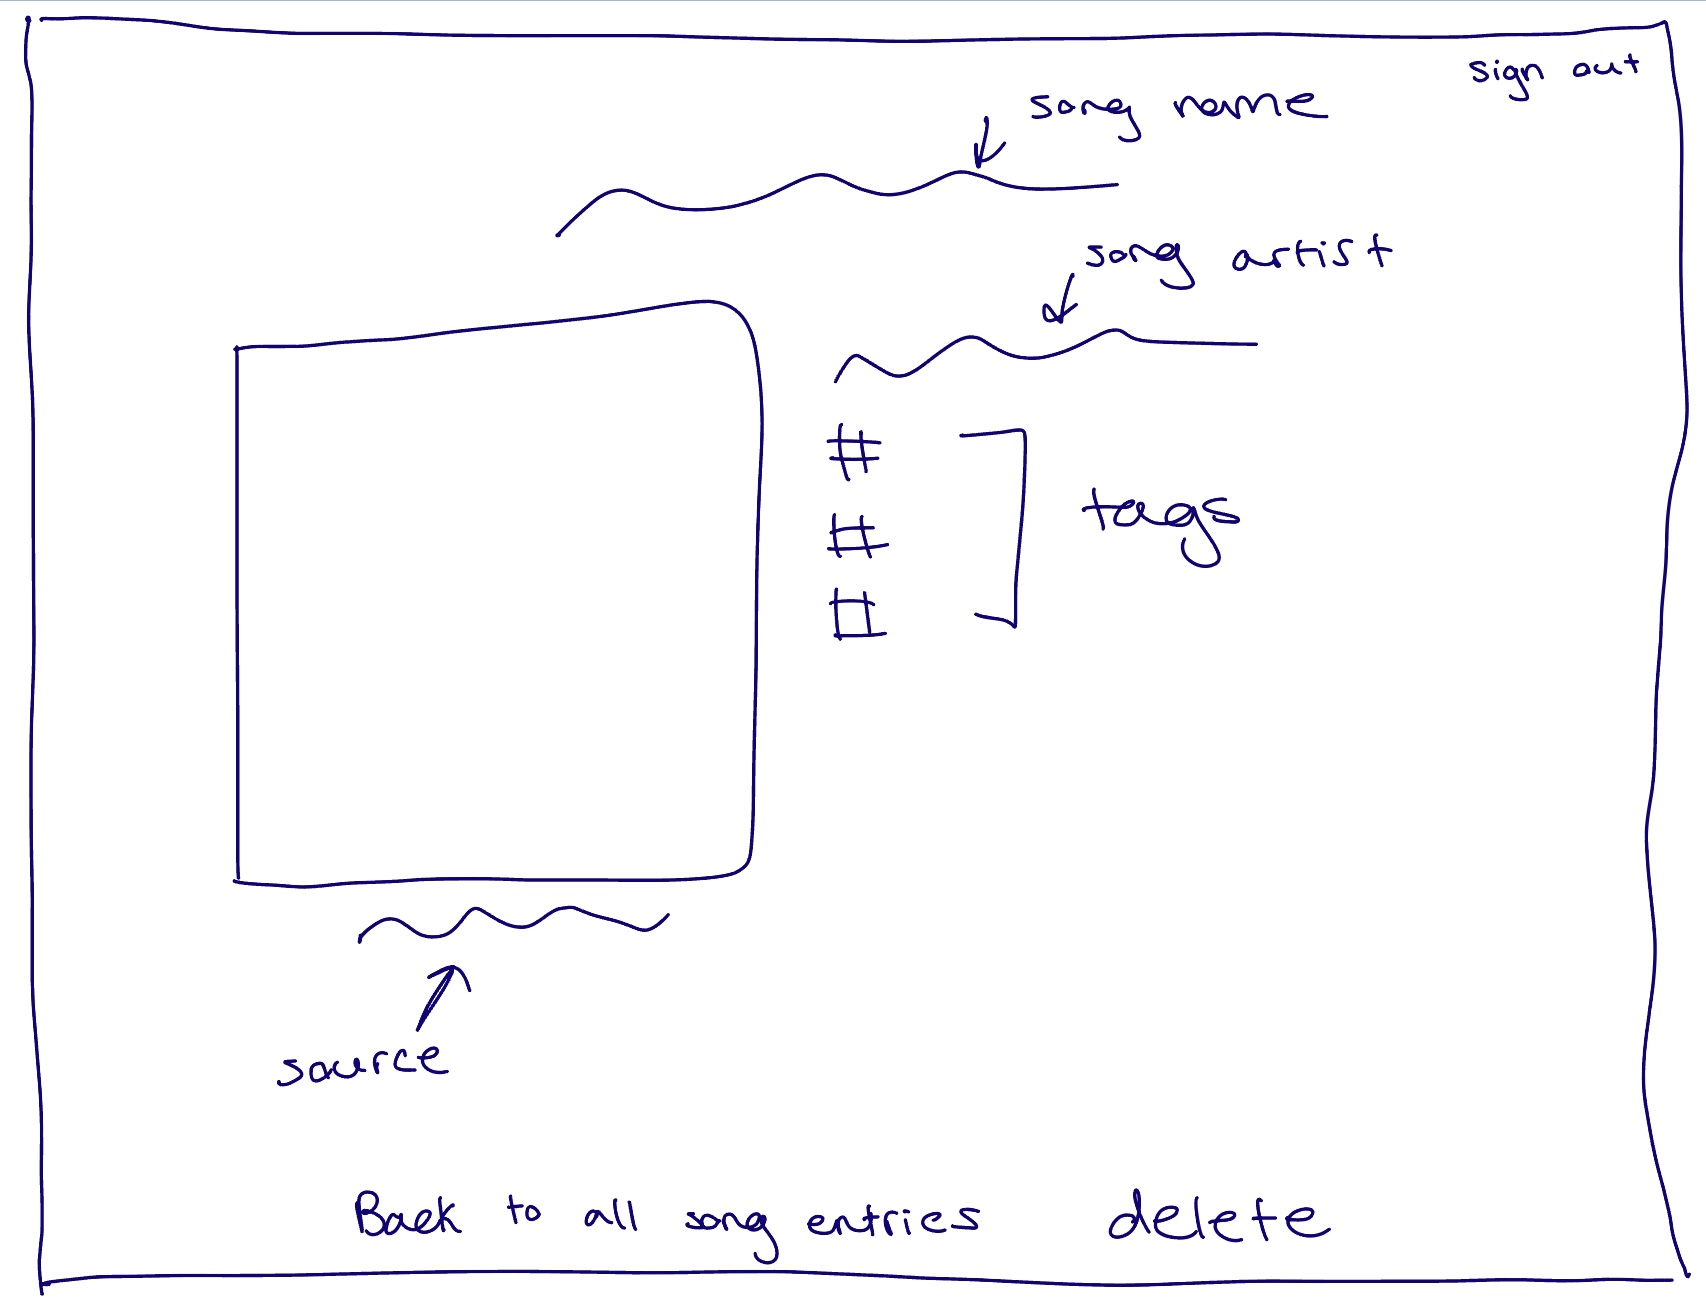 sign out
song name
song artist
#
#
#
tags
source
Back to all song entries delete